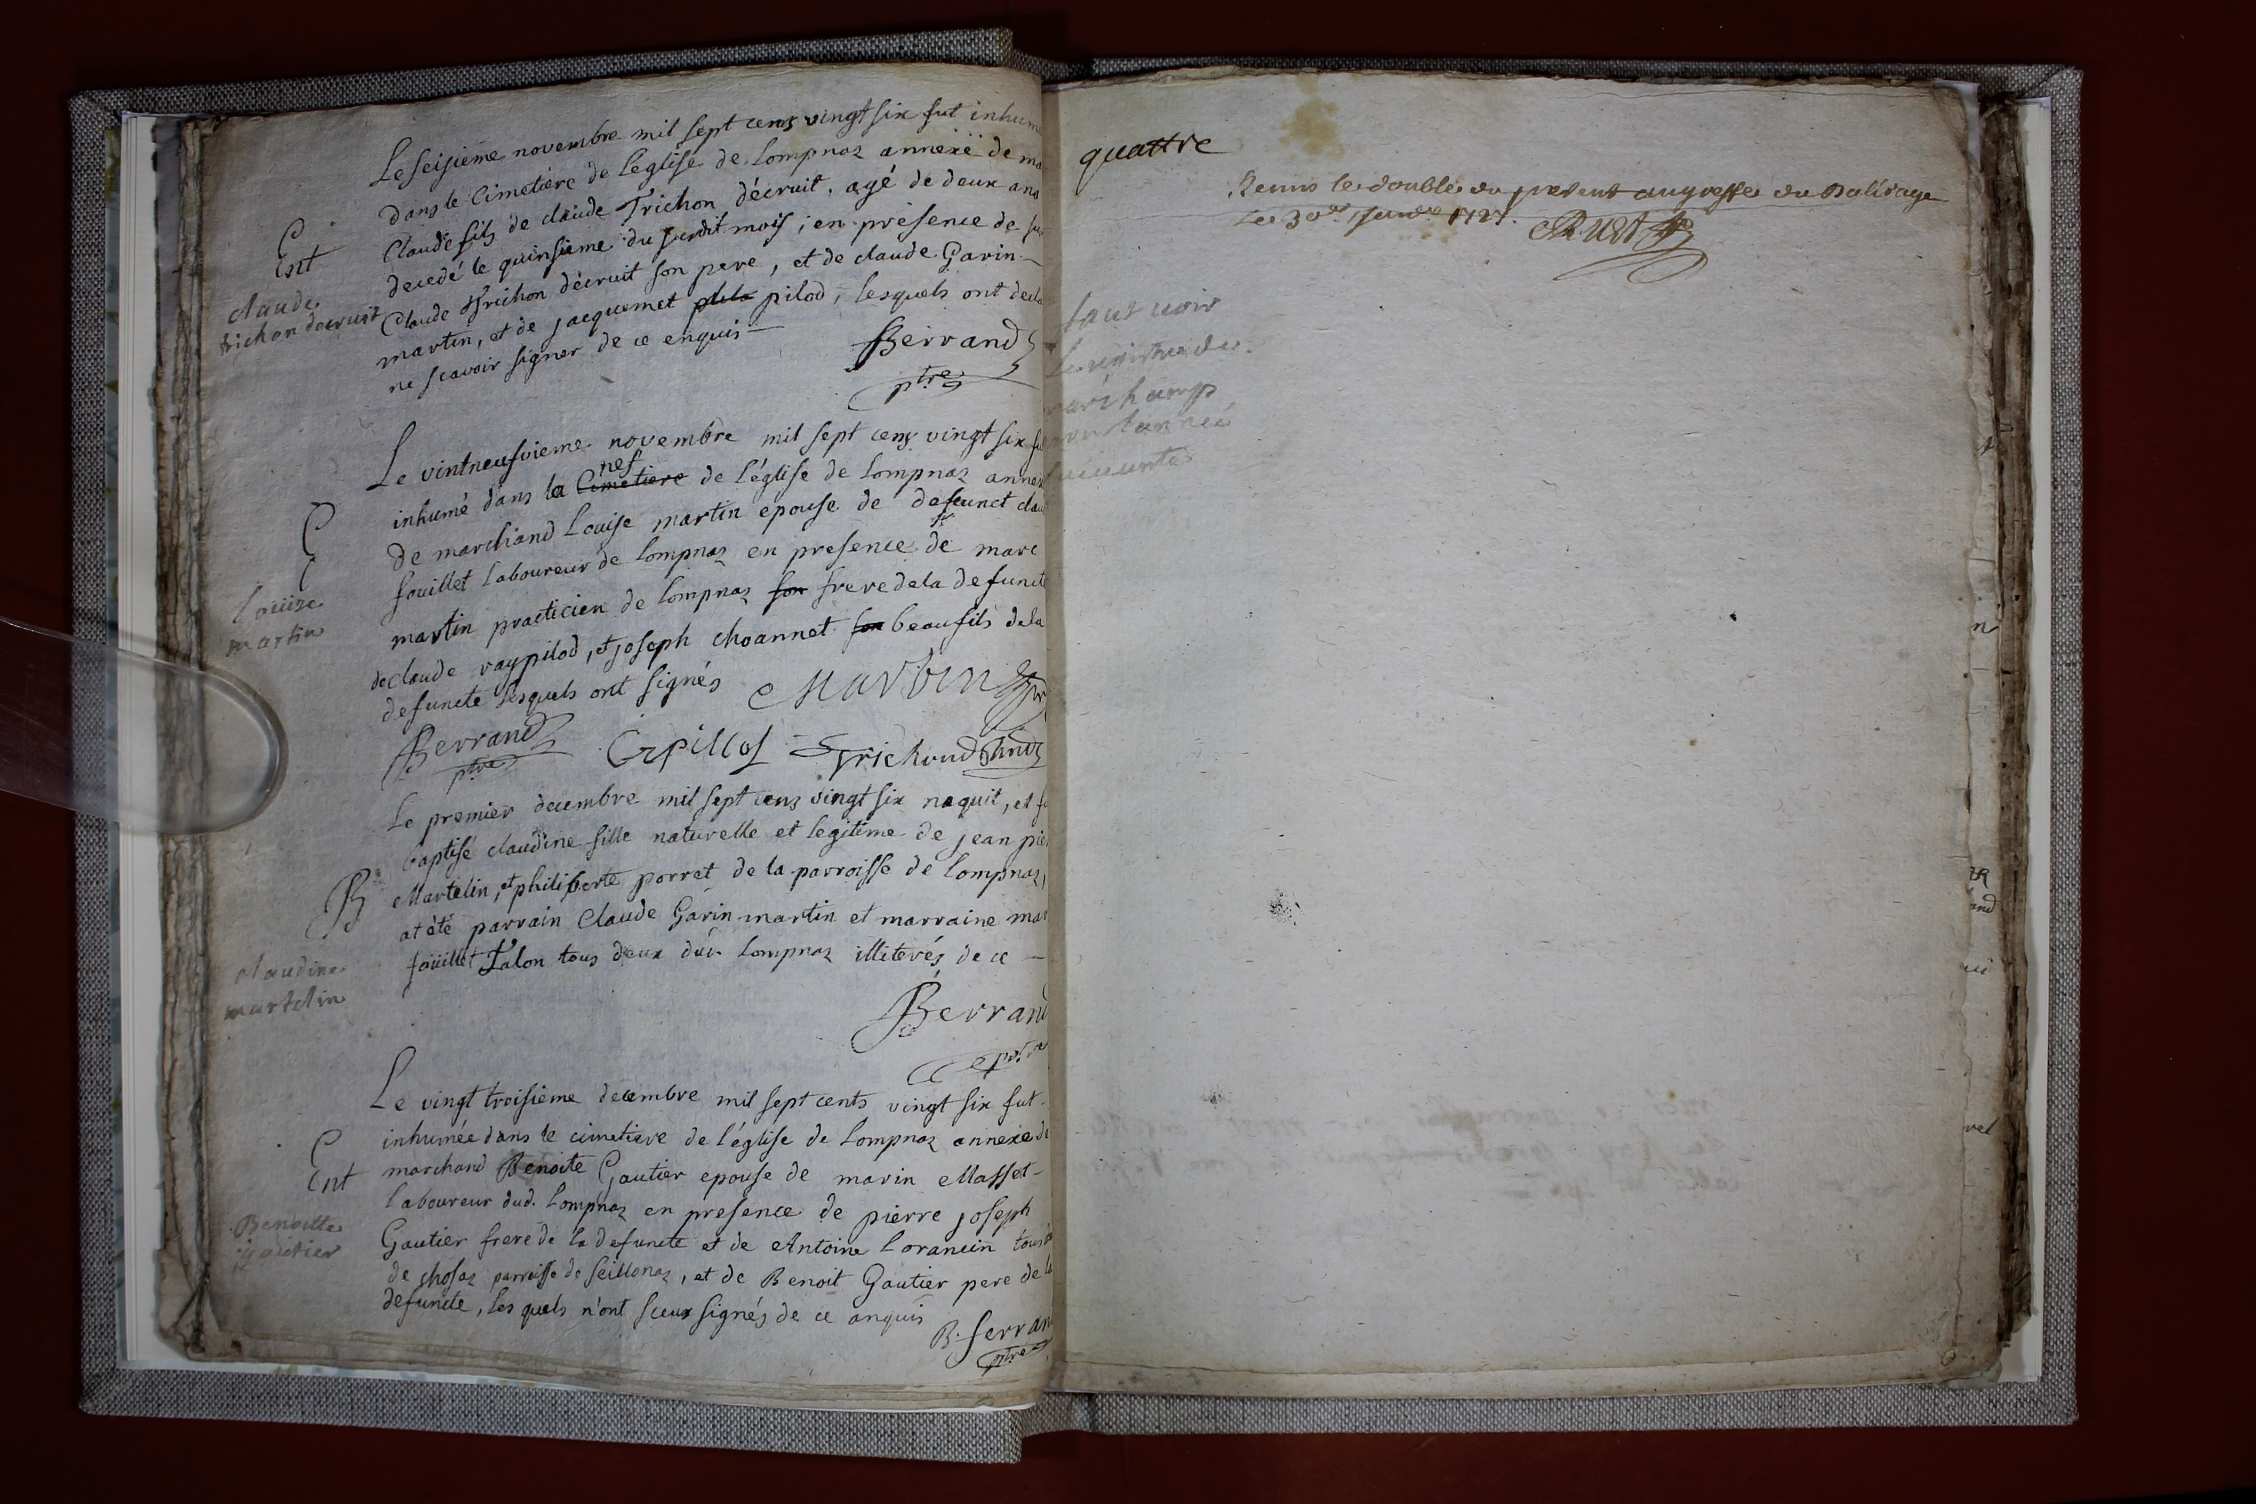 Le seisieme novembre mil sept cens vingt six fut inhum
dans le Cimetiere de l'eglise de Lompnaz annexe de ma
Claude fils de claude Trichon décruit, agé de deux ans
decedé le quinsieme du susdit mois, en présence de
Claude Trichon décruit son pere, et de claude Garin
martin, et de jacquemet pilod, lesquels ont decla
ne scavoir signer de ce enquis
Ent
claude
trichon decruit
Berrand
ptre
Le vintneufvieme novembre mil sept cens vingt six fu
inhumé dans la Cimetiere nef de l'église de Lompnaz annex
de marchand Louise martin epouse de defeunct clau
fouillet laboureur de Lompnaz en presence de sr marc
martin practicien de Lompnaz son frere de la defuncte
de claude ray pilod, et joseph choannet son beaufils de la
defuncte lesquels ont signés
Louise
martin
Martin
Berrand
ptre
Crpillod
Trichond
Le premier decembre mil sept cens vingt six naquit, et fu
baptisé claudine fille naturelle et legitime de jean pier
Martelin, et philiberte porret de la parroisse de Lompnaz,
at été parrain Claude Garin martin et marraine mar
foüillet Talon tous deux dud. Lompnaz illiterés de ce
B
claudine
martelin
Berrand
ptre
Le vingt troisieme decembre mil sept cents vingt six fut
inhumée dans le cimetiere de l'église de Lompnaz annexe de
marchand Benoite Gautier epouse de marin Masset
laboureur dud. Lompnaz en presence de pierre joseph
Gautier frere de la defuncte et de Antoine Lorancin tous
de chosaz parroisse de Seillonaz, et de Benoit Gautier pere de la
defuncte, les quels n'ont sceus signés de ce anquis
Ent
Benoitte
gautier
B. ferran
ptre
quattre
Remis le double du present au greffe du Balivage
Le 30e Janvr 1727.
faut voir
Le registre de
marchamp
pour lannée
suivante